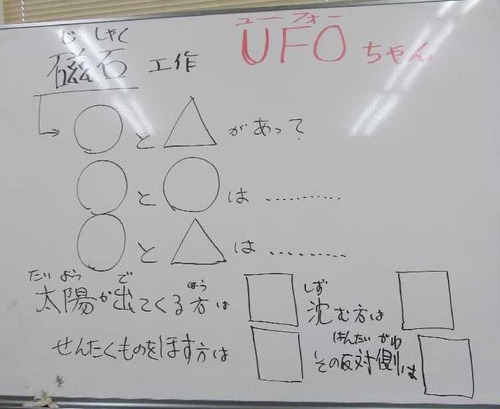 じ しゃく
磁石 工作
ユーフォー
UFOちゃん
○と△があって
○と○は…………
○と△は…………
だい よう で ほう
太陽が出てくる方は□
しず
沈む方は□
せんたくものをほす方は□
はんたい がわ
その反対側は□